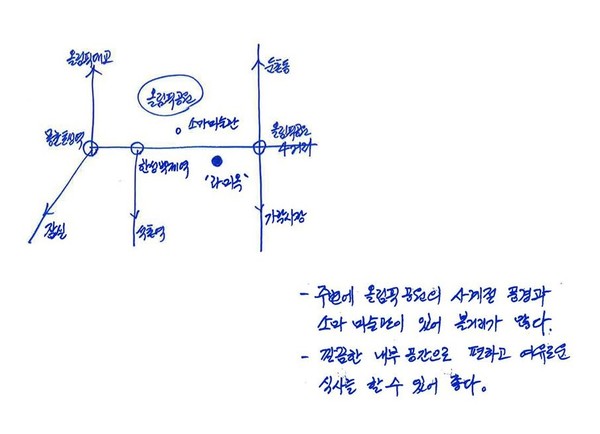 올림픽대교
둔촌동
올림픽공원
소마미술관
몽촌토성역
올림픽공원
4거리
한성백제역
'라미옥'
잠실
석촌역
가락시장
- 주변에 올림픽공원의 사계절 풍경과
소마 미술관이 있어 볼거리가 많다.
- 깔끔한 내부 공간으로 편하고 여유로운
식사를 할 수 있어 좋다.